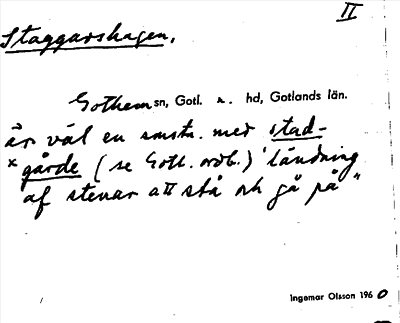 II
Staggarshagen.
Gothem sn, Gotl. n. hd, Gotlands län.
är väl en smstn. med stad-
×gårde (se Gotl. ordb.) 'ländning
af stenar att stå och gå på"
Ingemar Olsson 1960